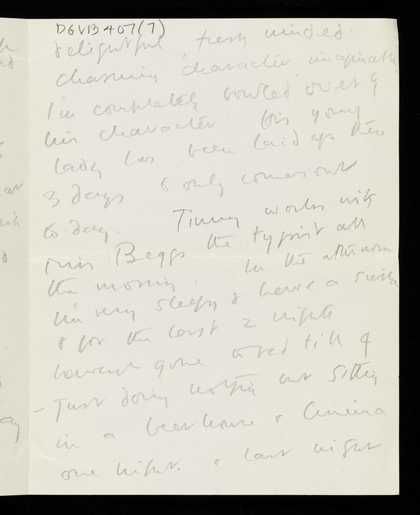 DGVB 407(7)
delightful fresh minded
charming character imaginable
I'm completely bowled over by
his character. His young
lady has been laid up these
3 days & only comes out
to day. Timmy works with
Miss Beggs the typist all
the morning. In the afternoon
I'm very sleepy & have a
& for the last 2 nights
haven't gone to bed till 4
- Just doing nothing but sitting
in a beer house & Cinema
one night. & last night